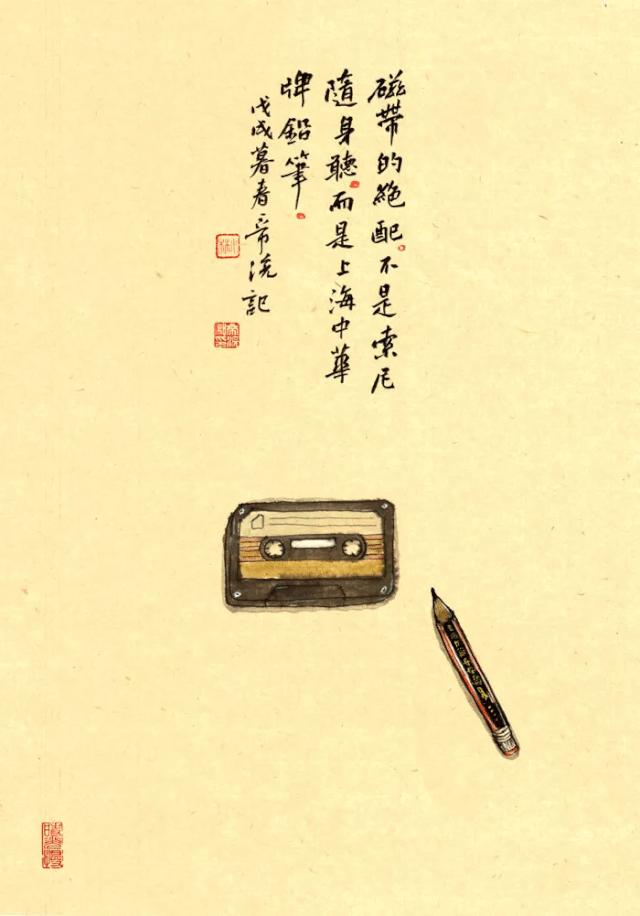 磁帶的絕配不是索尼
隨身聽而是上海中華
牌鉛筆
戊戌暮春帝浣記